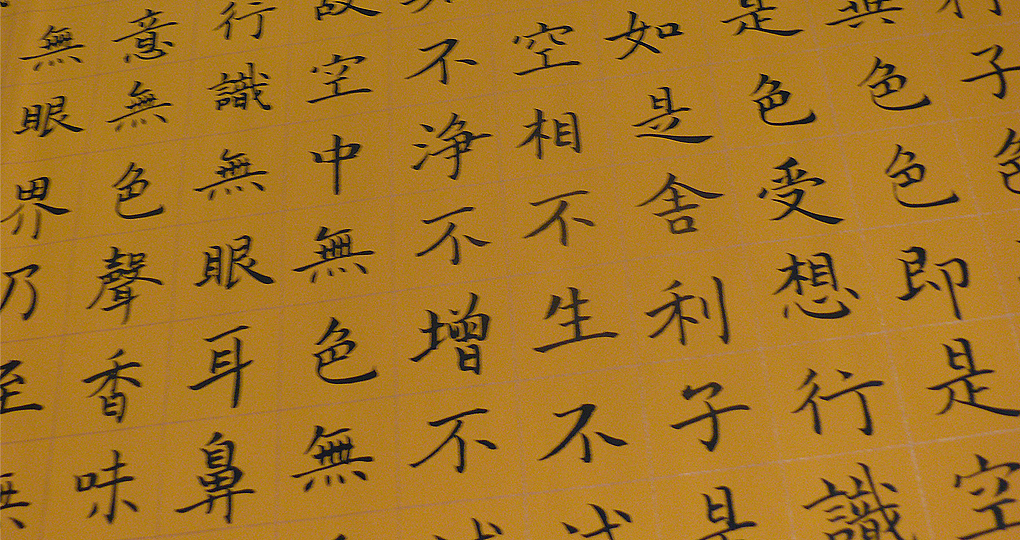 子色
異色色即是空
是色受想行識
如是舍利子是
空相不生不
不浄不增不
故空中無色無
行識無眼耳鼻
意無色聲香味
無眼界乃至無